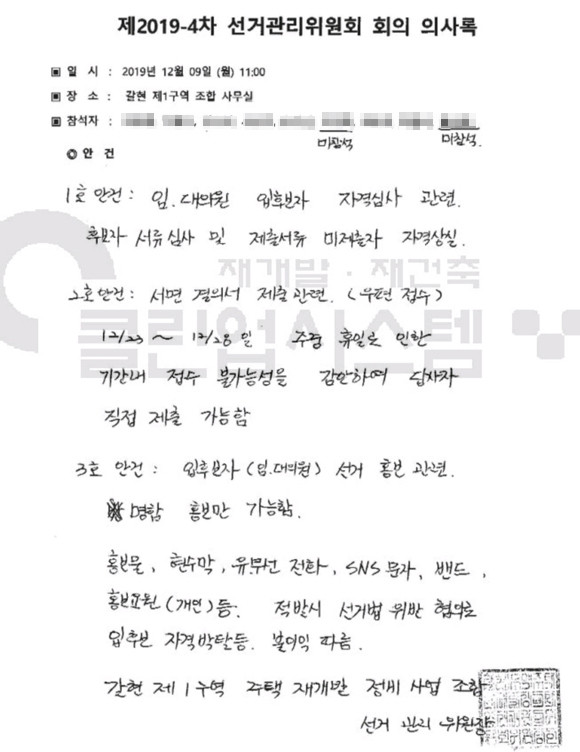 제2019-4차 선거관리위원회 회의 의사록
▣ 일 시 : 2019년 12월 09일 (월) 11:00
▣ 장 소 : 갈현 제1구역 조합 사무실
▣ 참석자 :
미참석 미참석.
◎ 안 건
1호 안건 : 임.대의원 입후보자 자격심사 관련.
후보자 서류심사 및 제출서류 미제출자 자격상실.
재개발·재건축
클린업시스템
2호안건 : 서면 결의서 제출관련. (우편 접수)
12/23 ~ 12/28일 주중 휴일로 인한
기간내 접수 불가능성을 감안하여 당사자
직접 제출 가능함
3호 안건 : 입후보자 (임.대의원) 선거 홍보 관련.
명함 홍보만 가능함.
홍보물, 현수막, 유무선 전화, SNS 문자, 밴드,
홍보요원 (개인) 등. 적발시 선거법 위반 협의로
입후보 자격박탈등. 불이익 따름.
갈현 제1구역 주택 재개발 정비 사업 조합
선거 관리 위원장